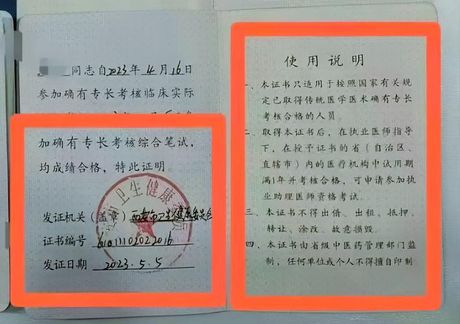 同志自2023年4月16日
参加确有专长考核临床实际
加确有专长考核综合笔试,
均成绩合格,特此证明。
卫生健康
发证机关(盖章)
证书编号
发证日期 2023.5.5
使用说明
一、本证书只适用于按照国家有关规
定已取得传统医学医术确有专长
考核合格的人员。
二、取得本证书后,在执业医师指导
下,在授予证书的省(自治区、
直辖市)内的医疗机构中试用期
满1年并考核合格,可申请参加执
业助理医师资格考试。
三、本证书不得出借、出租、抵押、
转让、涂改、故意损毁。
四、本证书由省级中医药管理部门监
制,任何单位或个人不得擅自印制